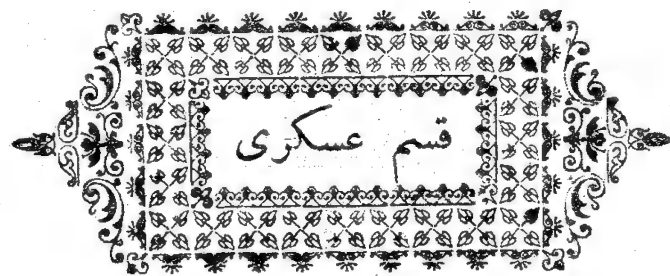 قسم عسكرى